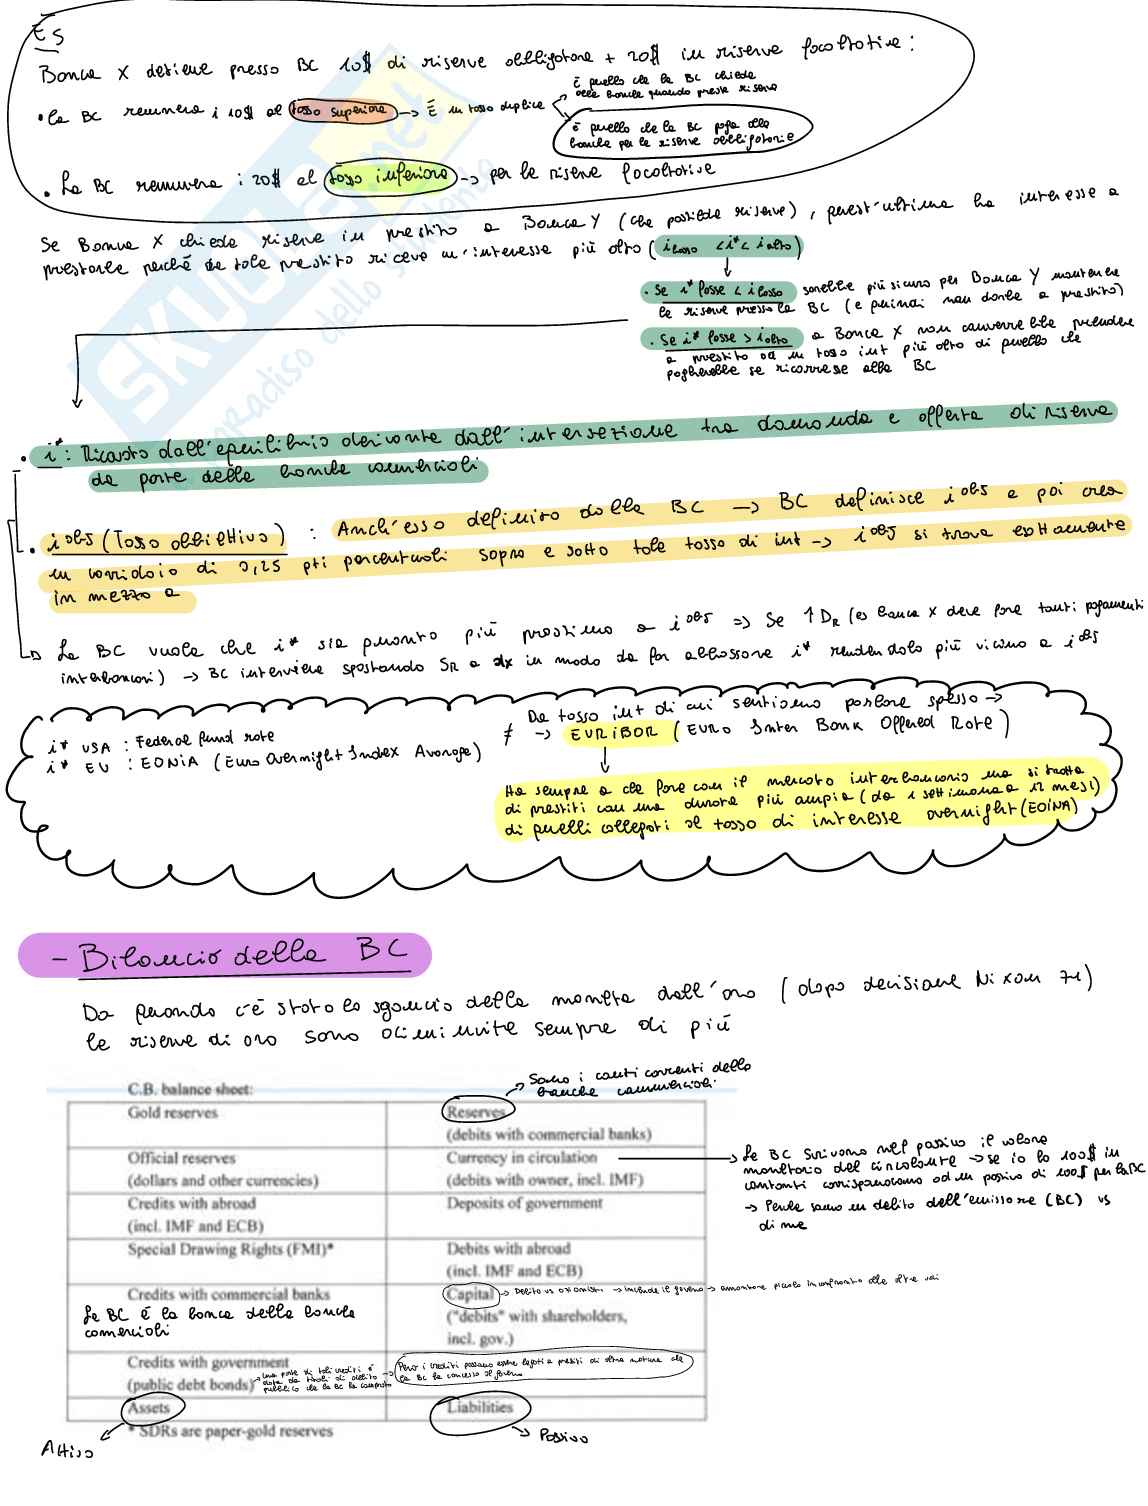 ES
Banca X detiene presso BC 10$ di riserve obbligatorie + 20$ in riserve facoltative:
• La BC remunera i 10$ al tasso superiore → È un tasso duplice
è quello che la BC chiede
alle banche quando presta riserve
è quello che la BC paga alle
banche per le riserve obbligatorie
• La BC remunera i 20$ al tasso inferiore → per le riserve facoltative
Se Banca X chiede riserve in prestito a Banca Y (che possiede riserve), quest'ultima ha interesse a
prestarle perché da tale prestito riceve un'interesse più alto (i basso < i* < i alto)
• Se i* fosse < i basso sarebbe più sicuro per Banca Y mantenere
le riserve presso la BC (e quindi non darle a prestito)
• Se i* fosse > i alto a Banca X non converrebbe prendere
a prestito ad un tasso int più alto di quello che
pagherebbe se ricorresse alla BC
• i*: Ricavato dall'equilibrio derivante dall'intersezione tra domanda e offerta di riserve
da parte delle banche commerciali
• i obj (Tasso obbiettivo) : Anch'esso definito dalla BC → BC definisce i obj e poi crea
un corridoio di 0,25 pti percentuali sopra e sotto tale tasso di int → i obj si trova esattamente
in mezzo a
La BC vuole che i* sia quanto più prossimo a i obj ⇒ Se ↑DR (es banca X deve fare tanti pagamenti
interbancari) → BC interviene spostando SR a dx in modo da far abbassare i* rendendolo più vicino a i obj
i* USA : Federal fund rate
i* EU : EONIA (Euro Overnight Index Average)
≠ Da tasso int di cui sentiamo parlare spesso →
→ EURIBOR (EURO Inter Bank Offered Rate)
Ha sempre a che fare con il mercato interbancario ma si tratta
di prestiti con una durata più ampia (da 1 settimana a 12 mesi)
di quelli collegati al tasso di interesse overnight (EOINA)
- Bilancio della BC
Da quando c'è stato lo sgancio della moneta dall'oro (dopo decisione Nixon 71)
le riserve di oro sono diminuite sempre di più
Sono i conti correnti delle
banche commerciali
C.B. balance sheet:
Gold reserves
Reserves
(debits with commercial banks)
Official reserves
(dollars and other currencies)
Currency in circulation
(debits with owner, incl. IMF)
Le BC scrivono nel passivo il valore
monetario del circolante → se io ho 100$ in
contanti corrispondono ad un passivo di 100$ per la BC
→ Perché sono un debito dell'emissore (BC) vs
di me
Credits with abroad
(incl. IMF and ECB)
Deposits of government
Special Drawing Rights (FMI)*
Debits with abroad
(incl. IMF and ECB)
Credits with commercial banks
La BC è la banca delle banche
commerciali
Capital → Debito vs azionisti → include il governo → ammontare piccolo in confronto alle altre voci
("debits" with shareholders,
incl. gov.)
Credits with government
(public debt bonds)
→ Una parte di tali crediti è
data da titoli di debito
pubblico che la BC ha comprato
Però i crediti possono essere legati a prestiti di altra natura che
la BC ha concesso al governo
Assets
Liabilities
* SDRs are paper-gold reserves
Attivo
Passivo
SKUOLA.net
paradiso dello studente